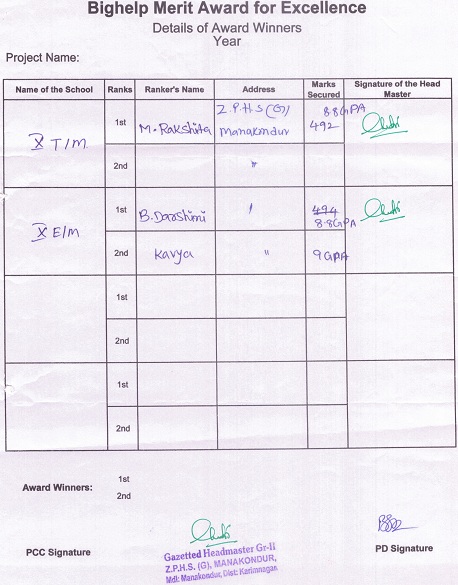 Bighelp Merit Award for Excellence
Details of Award Winners
Year
Project Name:
Name of the School Ranks Ranker's Name Address Marks Secured Signature of the Head Master
X T/M 1st M. Rakshita Z.P.H.S (G) Manakondur 8.8 GPA 492
2nd "
X E/M 1st B. Darshini " 494 8.8 GPA
2nd Kavya " 9 GPA
1st
2nd
1st
2nd
Award Winners: 1st
2nd
PCC Signature
Gazetted Headmaster Gr-II
Z.P.H.S. (G), MANAKONDUR,
Mdl: Manakondur, Dist: Karimnagar
PD Signature